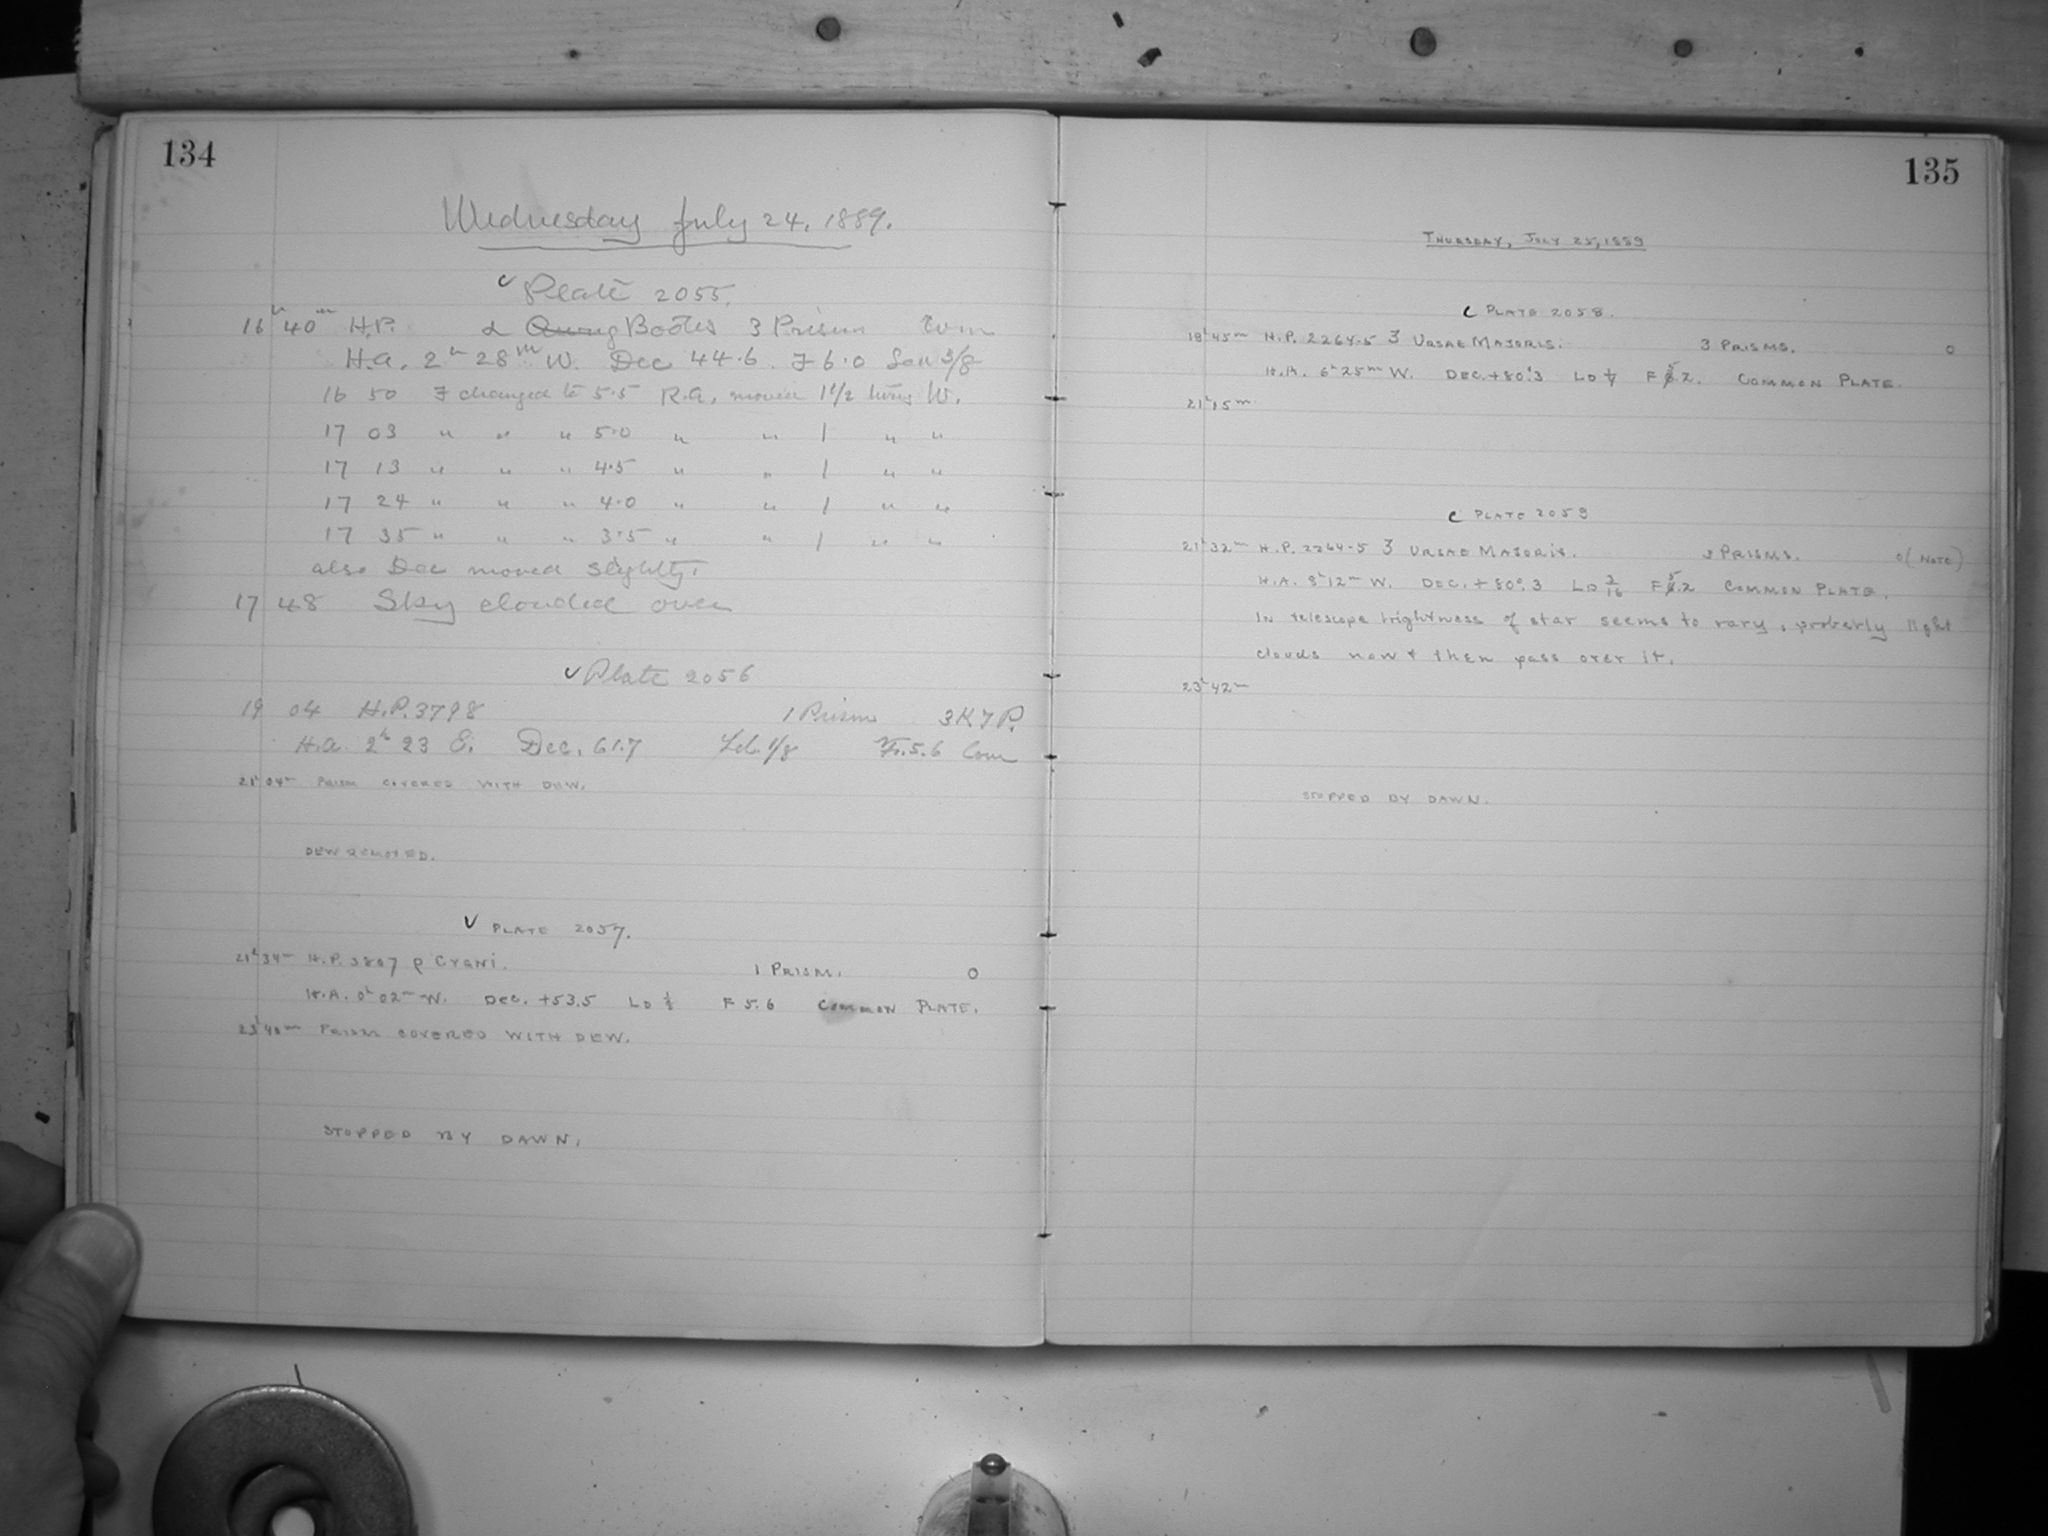 134
Wednesday July 24, 1889.
✓ Plate 2055.
16h 40m H.P. α Auriga Boötes 3 Prism Com
H.A. 2h 28m W. Dec 44.6. F 6.0 Led 3/8
16 50 F changed to 5.5 R.A. moved 1 1/2 turns W.
17 03 " " " 5.0 " " 1 " "
17 13 " " " 4.5 " " 1 " "
17 24 " " " 4.0 " " 1 " "
17 35 " " " 3.5 " " 1 " "
also Dec moved slightly.
17 48 Sky clouded over
✓ Plate 2056
19 04 H.P. 3798 1 Prism 3K7P.
H.A. 2h 23 E. Dec. 61.7 Ld. 1/8 F. 5.6 Com
21h04m Prism covered with dew.
Dew removed.
✓ Plate 2057.
21h34m H.P. 3807 ρ Cygni. 1 Prism. 0
H.A. 0h02m W. Dec. +53.5 Ld 1/8 F 5.6 Common Plate.
23h40m Prism covered with dew.
Stopped by dawn.
135
Thursday, July 25, 1889
C Plate 2058.
19h45m H.P. 2264-5 ζ Ursae Majoris. 3 Prisms. 0
H.A. 6h25m W. Dec. +80°.3 Ld 1/4 F 5.2. Common Plate.
21h15m
C Plate 2059
21h32m H.P. 2264-5 ζ Ursae Majoris. 3 Prisms. 0 (Note)
H.A. 8h12m W. Dec. +80°.3 Ld 3/16 F 5.2 Common Plate.
In telescope brightness of star seems to vary, proberly light
clouds now & then pass over it.
23h42m
Stopped by dawn.